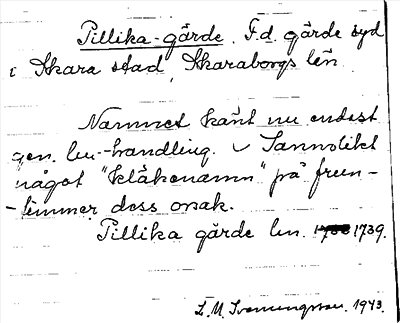 Pillika-gärde. F.d. gärde syd
i Skara stad, Skaraborgs län
Namnet känt nu endast
gen. lm-handling. Sannolikt
något "kläkenamn" på fruen-
-timmer dess orsak.
Pillika gärde lm. 1739.
1943.